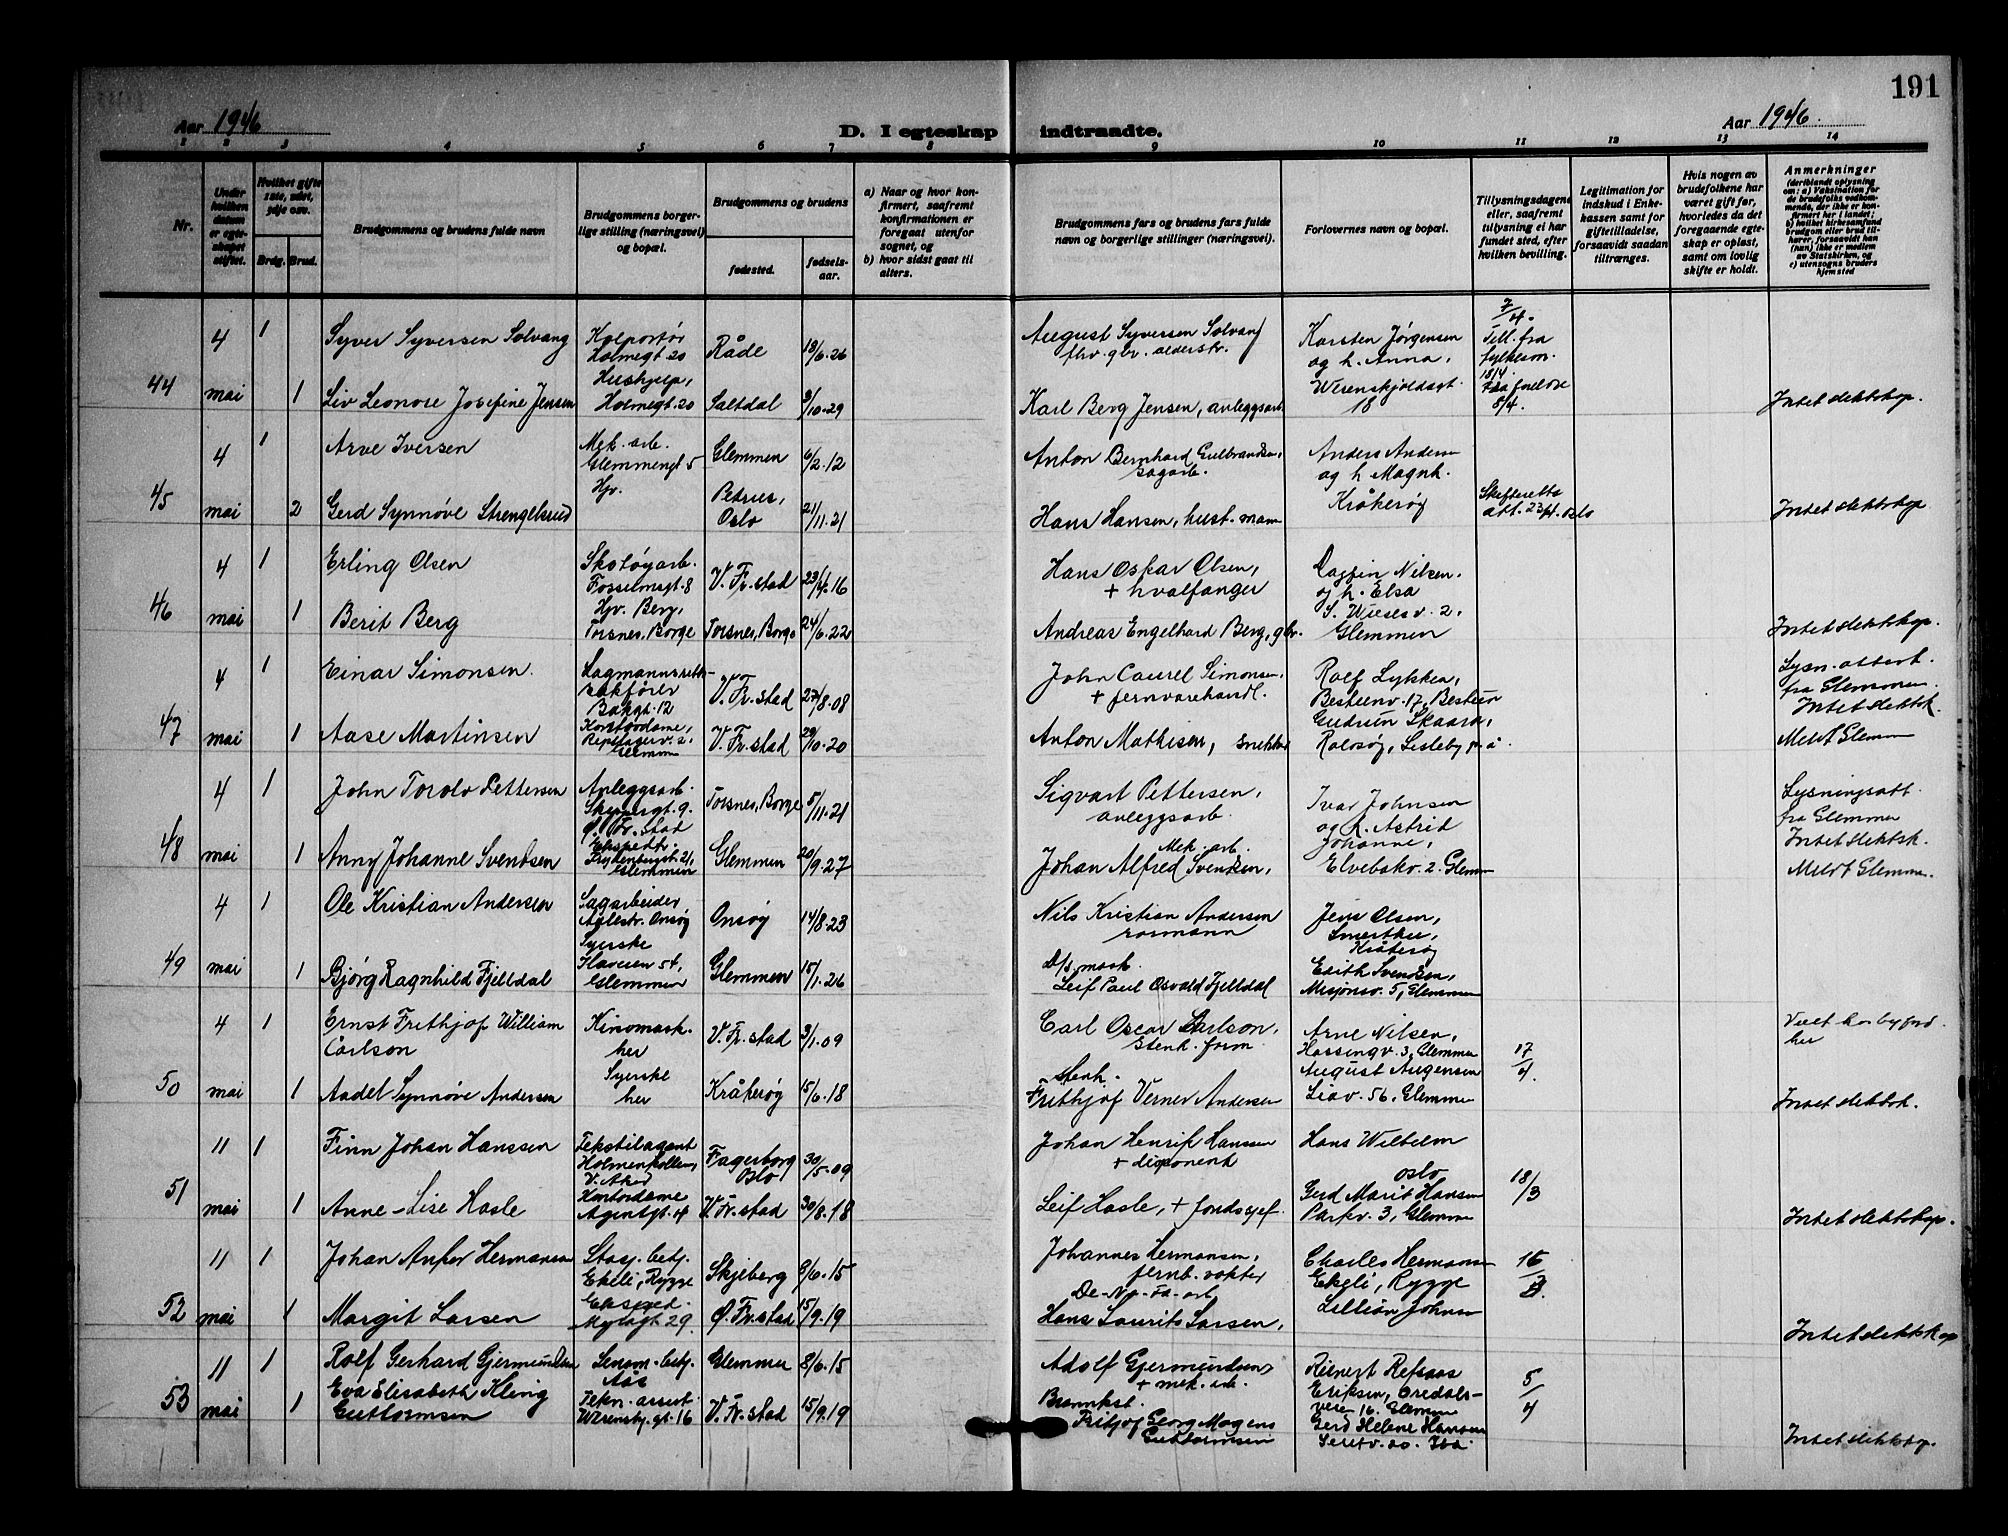 191
Aar 1946
D. I egteskap indtraadte.
Aar 1946.
1 2 3 4 5 6 7 8 9 10 11 12 13 14
Nr.
Under hvilken datum er egteskapet stiftet.
Hvilket gifte 1ste, 2det, 3dje osv.
Brdg. Brud.
Brudgommens og brudens fulde navn
Brudgommens borgerlige stilling (næringsvei) og bopæl.
Brudgommens og brudens
fødested. fødselsaar.
a) Naar og hvor konfirmert, saafremt konfirmationen er foregaat utenfor sognet, og
b) hvor sidst gaat til alters.
Brudgommens fars og brudens fars fulde navn og borgerlige stillinger (næringsvei).
Forlovernes navn og bopæl.
Tillysningsdagene eller, saafremt tillysning ei har fundet sted, efter hvilken bevilling.
Legitimation for indskud i Enkekassen samt for giftetilladelse, forsaavidt saadan tiltrænges.
Hvis nogen av brudefolkene har været gift før, hvorledes da det foregaaende egteskap er opløst, samt om lovlig skifte er holdt.
Anmerkninger
(deriblandt oplysning om: a) Vaksination for de brudefolks vedkommende, der ikke er konfirmert her i landet; b) hvilket kirkesamfund brudgom eller brud tilhører, forsaavidt han (hun) ikke er medlem av Statskirken, og c) utensogns bruders hjemsted
44
4 mai
1
Syver Syversen Solvang
Kolportør
Holmegt. 20
Råde
18/6.26
August Syversen Solvang
fhv. gbr. alderstr.
Karsten Jørgensen
og h. Anna,
Werenskjoldsgt.
18
7/4.
Till. fra
fylkesm.
18/4.
8/4.
1
Liv Leonore Josefine Jensen
Hushjelp,
Holmegt. 20
Saltdal
3/10.29
Karl Berg Jensen, anleggsarb.
Intet slektskap.
45
4 mai
1
Arve Iversen
Mek. arb.
Glemmengt 5
Glemmen
6/2.12
Anton Bernhard Gulbrandsen,
sagarb.
Anders Andersen
og h Magnh.
Kråkerøy
2
Gerd Synnøve Strengelsrud
Hjv.
Petrus,
Oslo
21/11.21
Hans Hansen, hust. mann
Skifteretts
att. 23/4. Oslo
Intet slektskap
46
4 mai
1
Erling Olsen
Skotøyarb.
V. Fr.stad
23/4.16
Hans Oskar Olsen,
+ hvalfanger
Dagfin Nilsen.
og h. Elsa
S. Wiesesv. 2,
Glemmen
1
Berit Berg
Hjv. Berg,
Torsnes, Borge
Torsnes, Borge
24/6.22
Andreas Engelhard Berg, gbr.
Intet slektskap.
47
4 mai
1
Einar Simonsen.
Lagmannsretts-
sakfører
Bakgt. 12
V. Fr. stad
27/8.08
John Laurel Simonsen,
+ jernvarehandl.
Rolf Lykken,
Bestumv. 17, Bestum
Gudrun Skaard,
Rolvsøy, Lisleby
Lysn. attest.
fra Glemmen
Intet slektsk.
1
Aase Martinsen
Kontordame,
Repslagerv. 2,
Glemmen
V. Fr. stad
29/10.20
Anton Mathisen, snekker
Meldt Glemm
48
4 mai
1
John Torolv Pettersen
Anleggsarb.
Skippergt. 9.
Ø. Fr. stad
Torsnes, Borge
5/11.21
Sigvart Pettersen,
anleggsarb.
Ivar Johnsen
og h. Astrid
Johanne,
Elvebakv. 2. Glemm
Lysningsatt.
fra Glemmen
Intet slektsk.
1
Anny Johanne Svendsen
Ekspedtr.
Glemmen
Glemmen
20/9.27
Mek. arb.
Johan Alfred Svendsen,
Meldt Glemm.
49
4 mai
1
Ole Kristian Andersen
Sagarbeider
Onsøy
Onsøy
14/8.23
Nils Kristian Andersen
rormann
Jens Olsen,
Kråkerøy
1
Bjørg Ragnhild Fjelldal
Syerske
Haveien 54,
Glemmen
Glemmen
15/1.26
D/s. mask.
Leif Paul Osvald Fjelldal
Edith Svendsen,
Misjonsv. 5, Glemmen
50
4 mai
1
Ernst Frithjof William
Carlson
Kinomask.
her
V. Fr. stad
3/1.09
Carl Oscar Carlson,
stenh. form.
Arne Nilsen,
Hassingv. 3, Glemmen
August Augensen
Liav. 56, Glemmen
17/4
Viet borgford.
her
1
Aadel Synnøve Andersen
Syerske
her
Kråkerøy
15/6.18
Stenh.
Frithjof Verner Andersen
Intet slektsk.
51
11 mai
1
Finn Johan Hanssen
Tekstilagent
Holmenkollen,
V. Aker
Fagerborg
Oslo
30/5.09
Johan Henrik Hanssen
+ disponent
Hans Wilhelm
Oslo
Gerd Marit Hansen
Parkv. 3, Glemmen
18/3
1
Anne-Lise Hasle
Kontordame
Agentgt. 4
V. Fr. stad
30/8.18
Leif Hasle, + fondssjef
Intet slektskap.
52
11 mai
1
Johan Anker Hermansen
Stasj. betj.
Ekeli, Rygge
Skjeberg
9/6.15
Johannes Hermansen,
jernb. vokter
Charles Hermansen
Ekeli, Rygge
Lillian Johnsen
16/3.
1
Margit Larsen
Eksped.
29.
Ø. Fr. stad
15/9.19
De-No-Fa-arb
Hans Laurits Larsen,
Intet slektskap
53
11 mai
1
Rolf Gerhard Gjermundsen
Lensm. betj.
Aas
Glemmen
8/6.15
Adolf Gjermundsen,
+ mek. arb.
Reinert Refsaas
Eriksen, Oredals-
veien 16. Glemmen
Gerd Helene Hansen
5/4
1
Eva Elisabeth Kling
Guttormsen
Tekn. assist.
Werenskj. gt. 16
V. Fr. stad
15/9.19
Brannkst.
Frithjof Georg Mogens
Guttormsen
Intet slektskap.